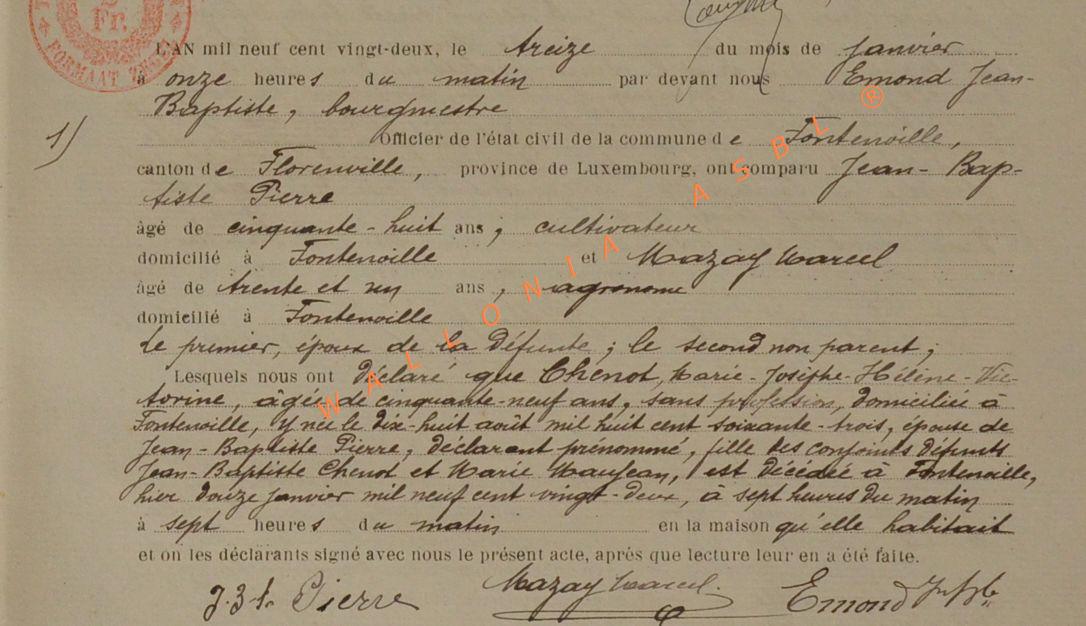 Fr.
FORMAAT ZEGEL
L'AN mil neuf cent vingt-deux, le treize du mois de janvier
à onze heures du matin par devant nous Emond Jean-
Baptiste, bourgmestre
1)
Officier de l'état civil de la commune de Fontenoille,
canton de Florenville, province de Luxembourg, ont comparu Jean-Bap-
tiste Pierre
âgé de cinquante-huit ans, cultivateur
domicilié à Fontenoille et Mazay Marcel
âgé de trente et un ans, agronome
domicilié à Fontenoille
le premier, époux de la défunte; le second non parent;
Lesquels nous ont déclaré que Chenot, Marie-Josèphe-Hélène-Vic-
torine, âgée de cinquante-neuf ans, sans profession, domiciliée à
Fontenoille, y née le dix-huit août mil huit cent soixante-trois, épouse de
Jean-Baptiste Pierre, déclarant prénommé, fille des conjoints défunts
Jean-Baptiste Chenot et Marie Maujean, est décédée à Fontenoille,
hier douze janvier mil neuf cent vingt-deux, à sept heures du matin
à sept heures du matin en la maison qu'elle habitait
et ont les déclarants signé avec nous le présent acte, après que lecture leur en a été faite.
J. Bte Pierre Mazay Marcel. Emond J. Bte
WALLONIA ASBL ®